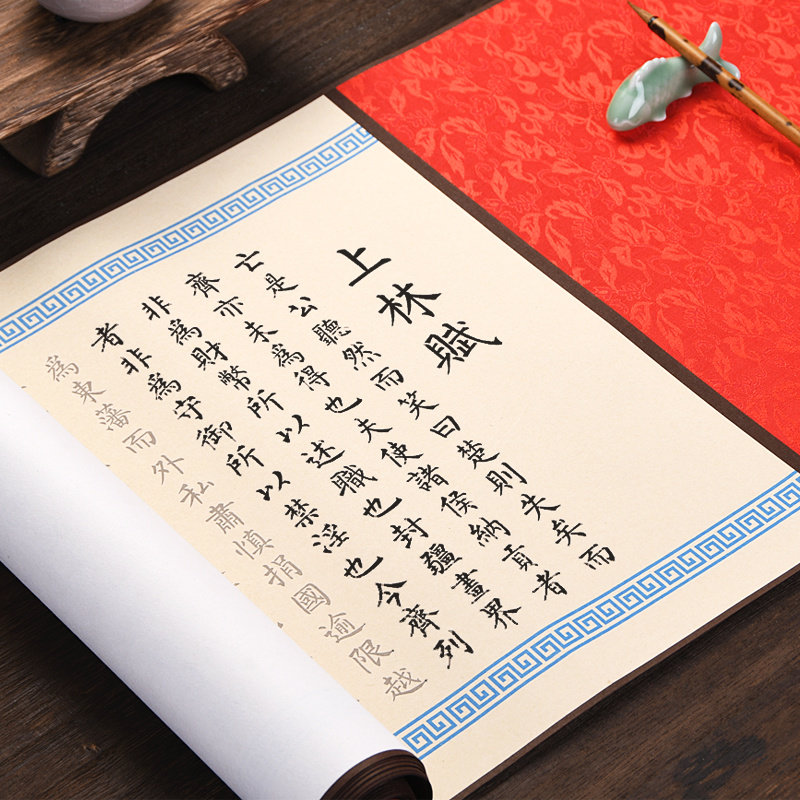 上林賦
亡是公聽然而笑曰楚則失矣而
齊亦未爲得也夫使諸侯納貢者
非爲財幣所以述職也封疆畫界
者非爲守御所以禁淫也今齊列
爲東藩而外私肅慎捐國逾限越